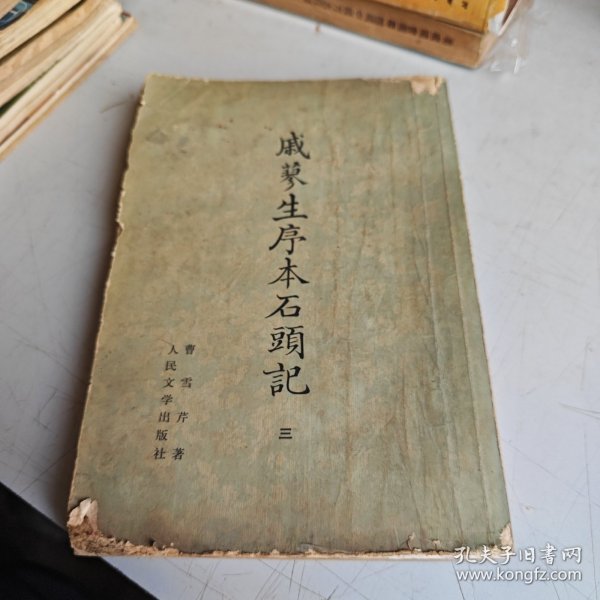 戚蓼生序本石頭記
三
曹雪芹著
人民文学出版社
孔夫子旧书网
www.kongfz.com